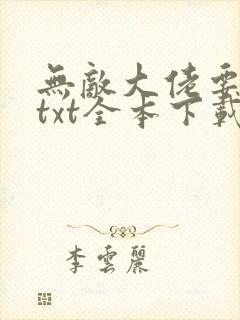 無敵大佬要
txt全本下載
李雲麗